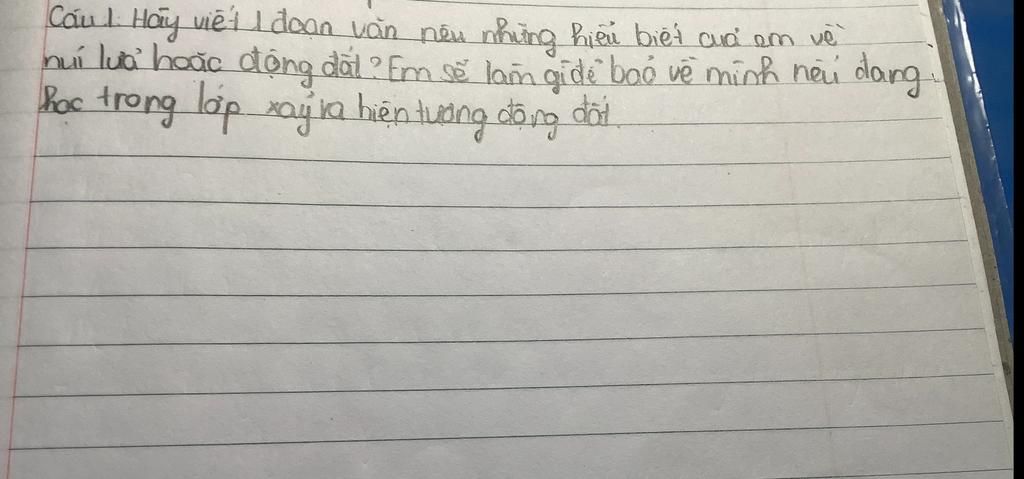 Câu 1. Hãy viết 1 đoạn văn nêu những hiểu biết của em về
núi lửa hoặc động đất? Em sẽ làm gì để bảo vệ mình nếu đang
học trong lớp xảy ra hiện tượng động đất.